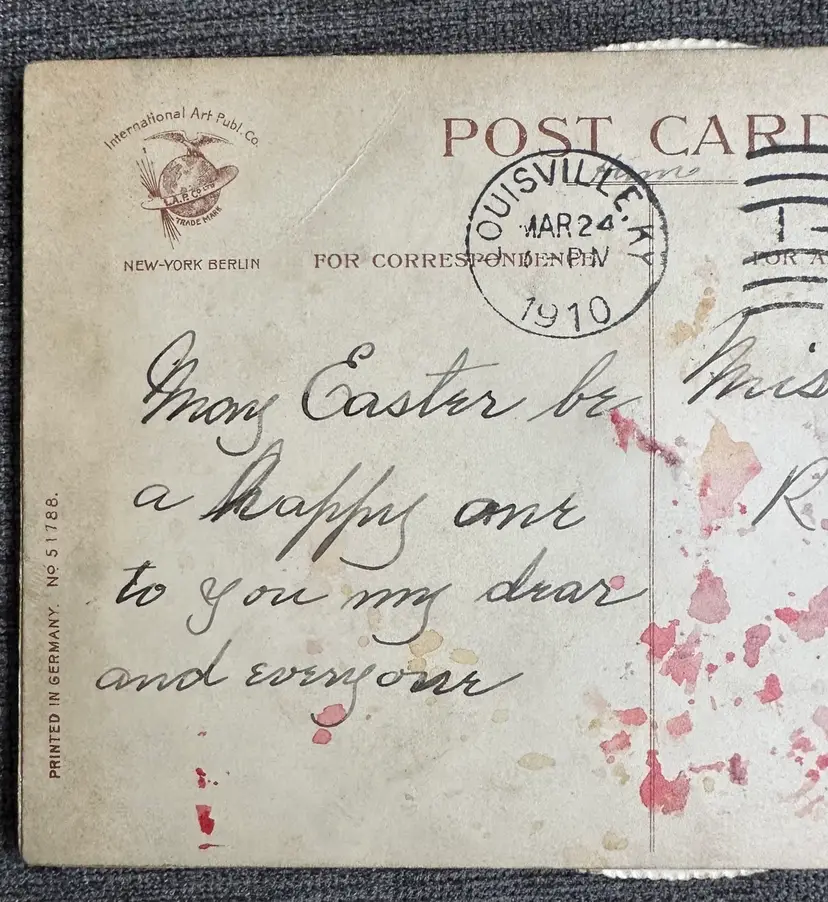 International Art Publ. Co.
I.A.P. Co.
TRADE MARK
NEW-YORK BERLIN
POST CARD
LOUISVILLE, KY
MAR 24
PM
1910
FOR CORRESPONDENCE
FOR A
May Easter be
a happy one
to you my dear
and everyone
Mis
R
PRINTED IN GERMANY. No 51788.